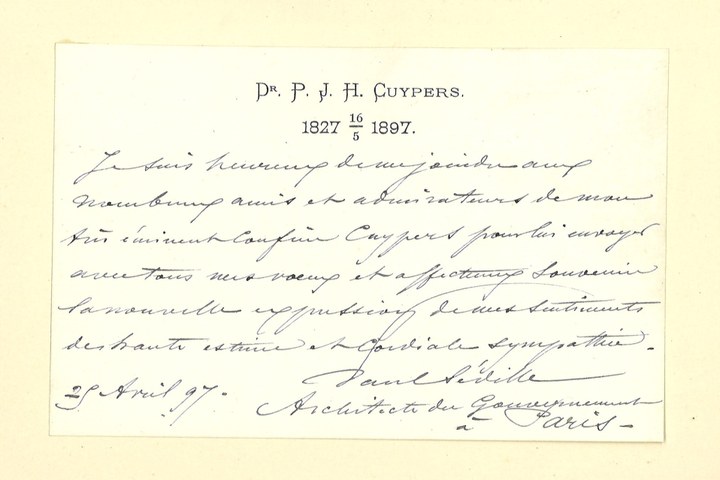 Dr. P. J. H. Cuypers.
1827 16/5 1897.
Je suis heureux de me joindre aux
nombreux amis et admirateurs de mon
très éminent Confrère Cuypers pour lui envoyer
avec tous mes vœux et affectueux Souvenir
la nouvelle expression de mes sentiments
de haute estime et Cordiale Sympathie.
Paul Sédille
25 Avril 97.
Architecte du Gouvernement
à Paris